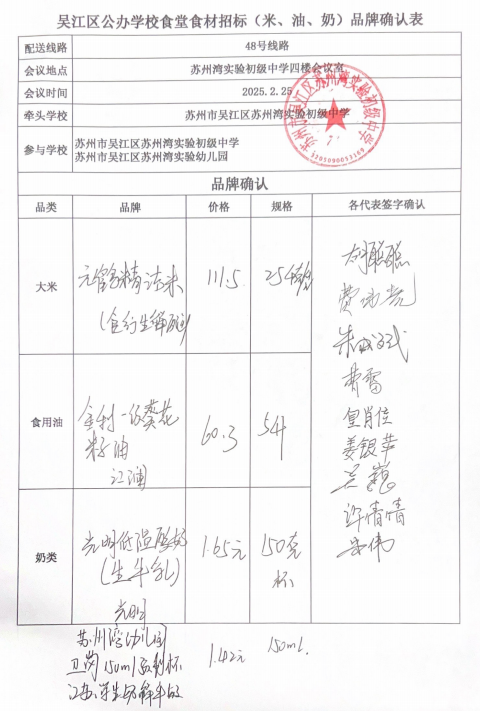 吴江区公办学校食堂食材招标（米、油、奶）品牌确认表
配送线路 48号线路
会议地点 苏州湾实验初级中学四楼会议室
会议时间 2025.2.25
牵头学校 苏州市吴江区苏州湾实验初级中学
参与学校 苏州市吴江区苏州湾实验初级中学
苏州市吴江区苏州湾实验幼儿园
品牌确认
品类 品牌 价格 规格 各代表签字确认
大米 精洁米 111.5 25
食用油 金利一级葵花 60.3 5升
籽油
江澜
奶类 光明低温酸奶 1.65元 150克
(生牛乳) 杯
光明
朱
费雷
皇肖佳
姜银苹
吴巍
许倩倩
伟
苏州湾幼儿园
卫岗150ml 杯 1.42元 150ml
江苏 学生奶鲜牛奶
苏州市吴江区苏州湾实验初级中学